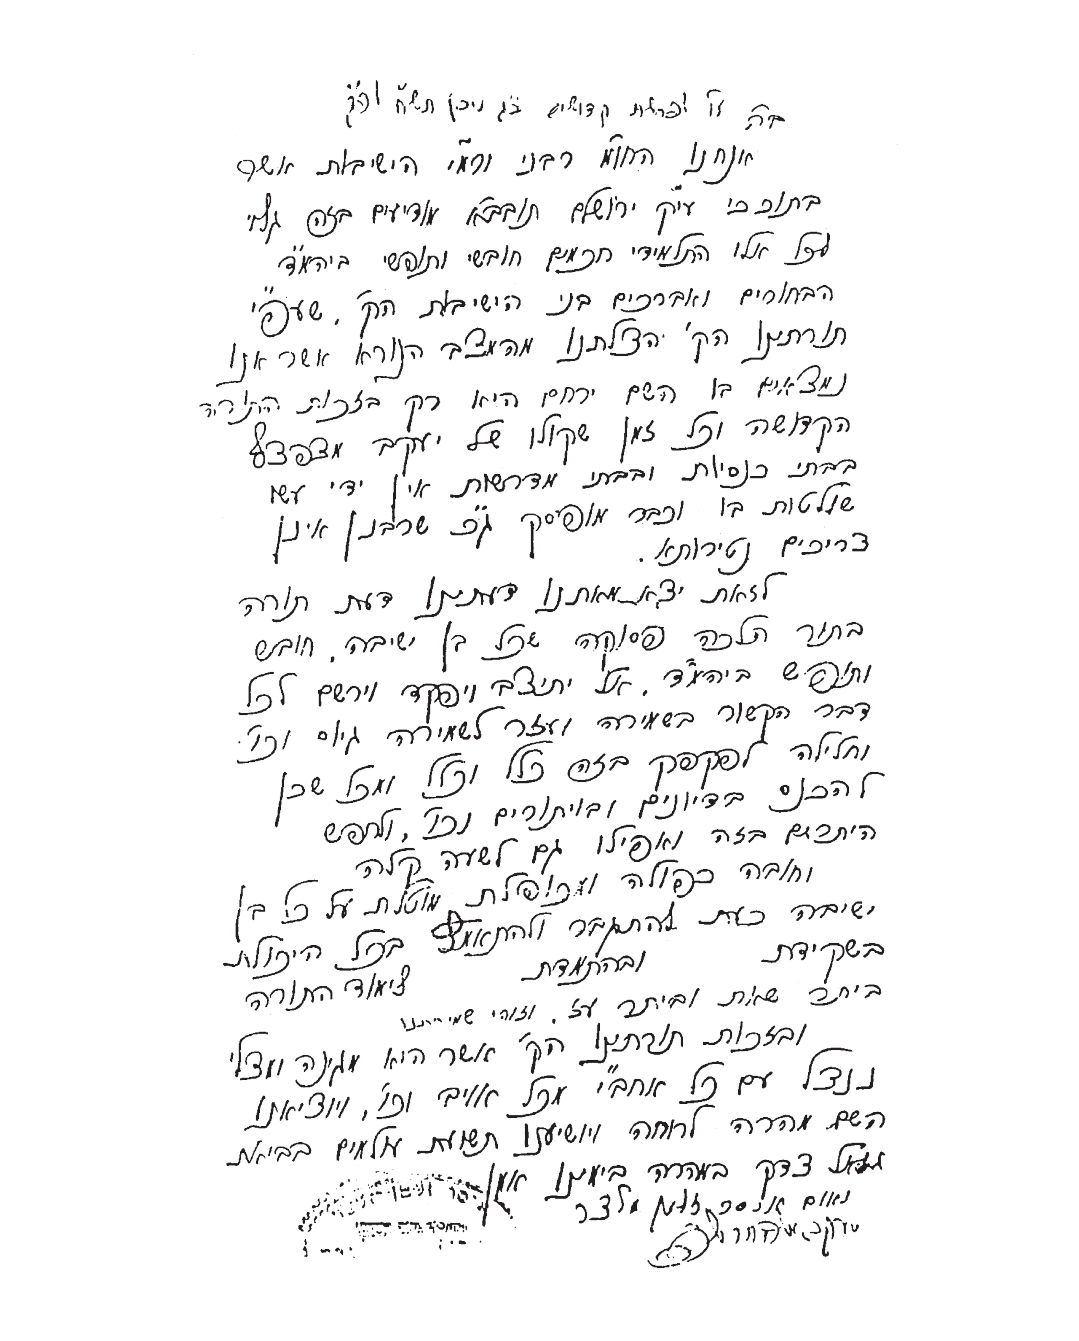 ב״ה יו׳ לפרשת קדושים כ״ג ניסן תש״ח לפ״ק
אנחנו הח״מ רבני ור״מי הישיבות אשר
בתוככי עיה״ק ירושלם תובב״א מודיעים בזה גלוי
לכל אלו התלמידי חכמים חובשי ותופשי ביהמ״ד
הבחורים ואברכים בני הישיבות הק׳, שעפ״י
תורתינו הק׳ הצלתנו מהמצב הנורא אשר אנו
נמצאים בו השם ירחם היא רק בזכות התורה
הקדושה וכל זמן שקולו של יעקב מצפצף
בבתי כנסיות ובבתי מדרשות אין ידי עשו
שולטות בו וכבר מופיסק ג״כ שרבנן אינן
צריכים נטירותא.
לזאת יצא מאתנו דעתינו דעת תורה
בתור הלכה פסוקה שכל בן ישיבה, חובש
ותופש ביהמ״ד, אל יתיצב ויפקד וירשם לכל
דבר הקשור בשמירה ועזר לשמירה גיוס וכו׳
וחלילה לפקפק בזה כלל וכלל ומכל שכן
להכנס בדיונים ובויתורים וכו׳, ולחפש
היתרים בזה ואפילו גם לשעה קלה
וחובה כפולה ומכופלת מוטלת על כל בן
ישיבה כעת להתגבר ולהתאמץ בכל היכולת
בשקידת ובהתמדת לימוד התורה
ביתר שאת וביתר עז, וזוהי שמירתנו
ובזכות תורתינו הק׳ אשר הוא מגינה ומצלי
ננצל עם כל אחב״י מכל אויב וכו׳, ויוציאנו
השם מהרה לרוחה ויושיענו תשועת עולמים בביאת
גואל צדק במהרה בימינו אמן
נאום איסר זלמן מלצר